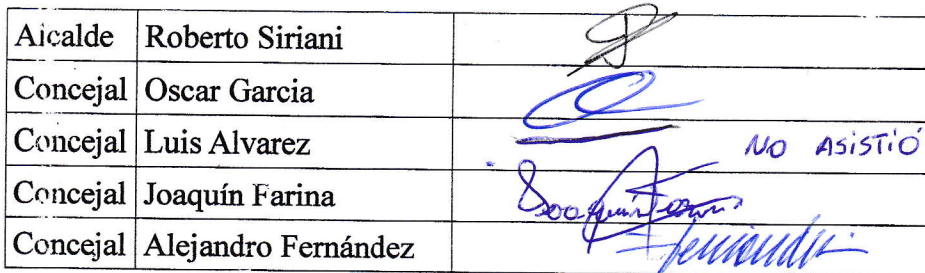 Alcalde Roberto Siriani
Concejal Oscar Garcia
Concejal Luis Alvarez NO ASISTIÓ
Concejal Joaquín Farina Joaquín Farina
Concejal Alejandro Fernández Fernández